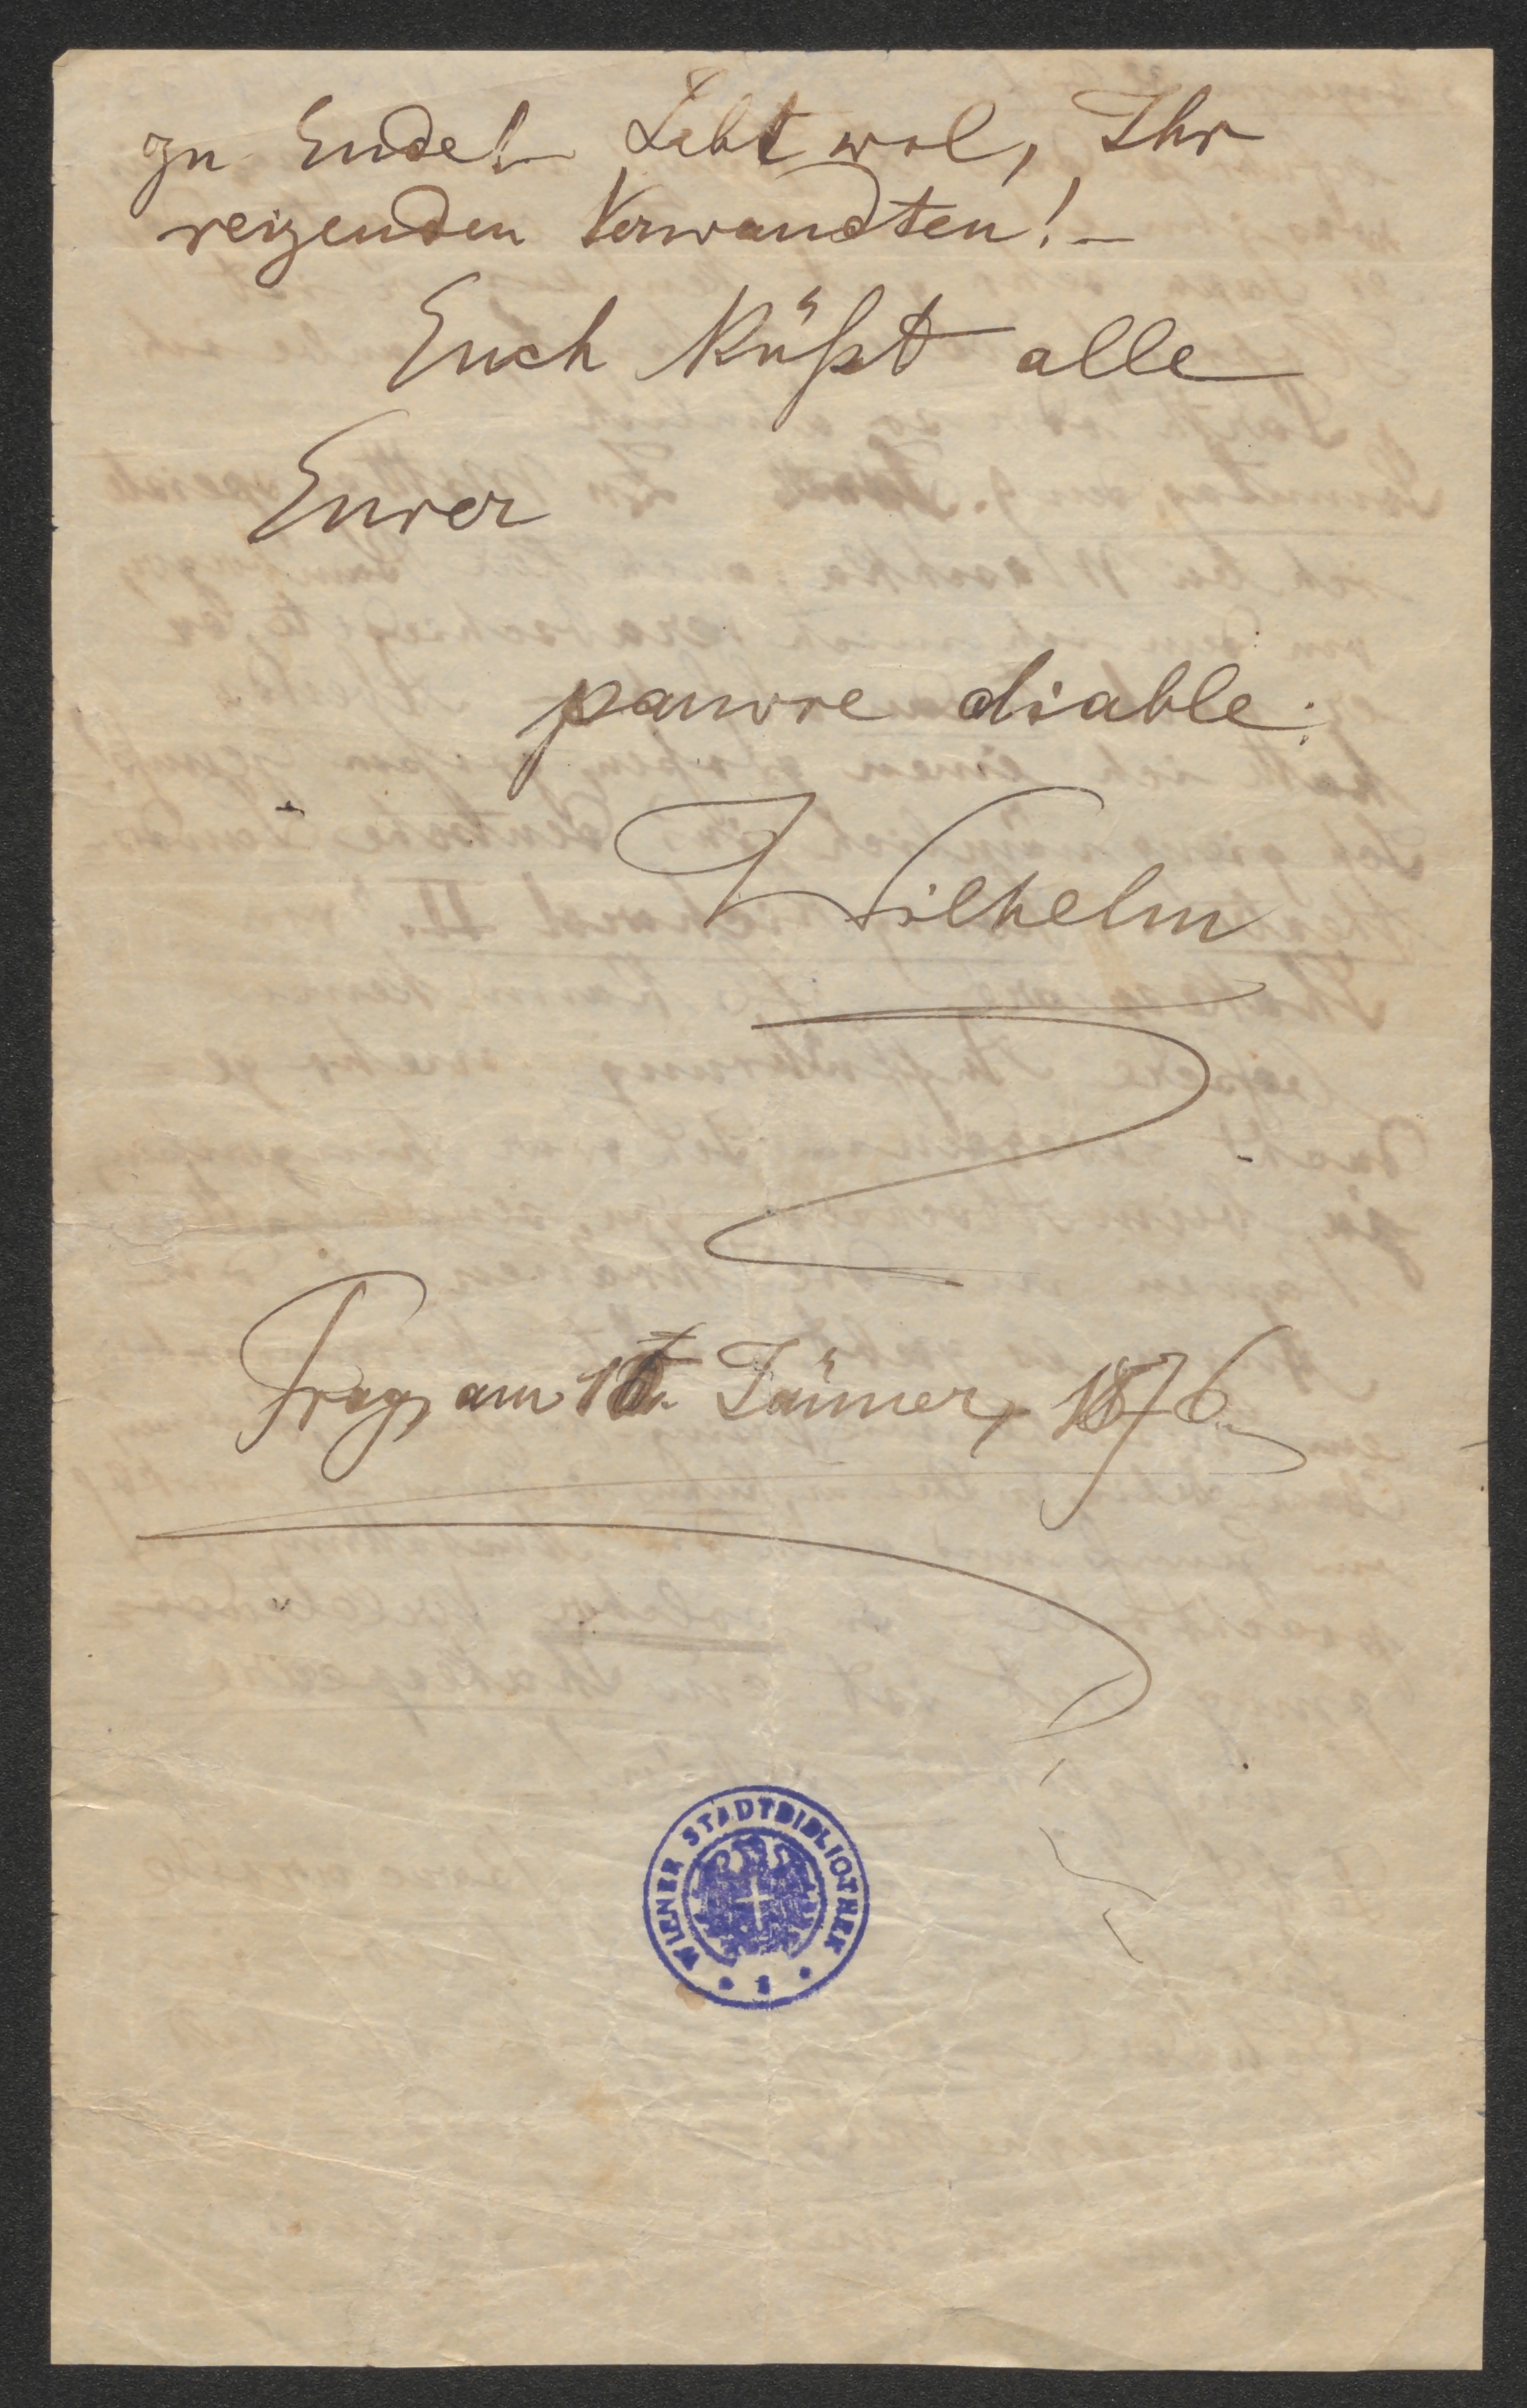 zu Ende! Lebt wol, Ihr
reizenden Verwandten! –
Euch küßt alle
Eurer
pauvre diable.
Wilhelm
Prag, am Jänner, 1876.
WIENER STADTBIBLIOTHEK